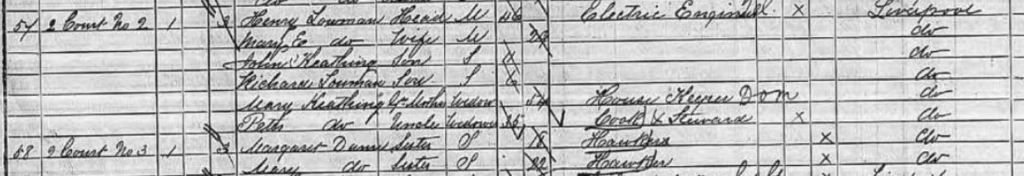 57 2 Court No 2 1 3 Henry Louman Head M 46 Electric Engine X Liverpool
Mary E do Wife M 29 do
John Keathing Son S do
Richard Louman Son S do
Mary Keathing Gd Mother Widow 54 House Keeper Dom do
do Uncle Widower 35 Cook & Steward X do
58 2 Court No 3 1 3 Margaret Dunn Sister S 18 Hawker X do
Mary do Sister S 22 Hawker X do